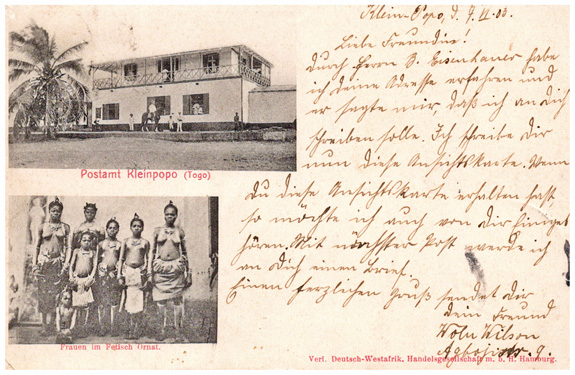 Klein-Popo, d. 7. VI. 03.
Liebe Freundin!
Durch Herrn D. Eisenhauer habe
ich deine Adresse erfahren und
er sagte mir daß ich an dich
schreiben solle. Ich schreibe dir
nun diese Ansichtskarte. Wenn
Du diese Ansichtskarte erhalten hast
so möchte ich auch von dir Einiges
hören. Mit nächster Post werde ich
an dich einen Brief.
Einen herzlichen Gruß sendet dir
dein Freund
Wilson
Postamt Kleinpopo (Togo)
Frauen im Fetisch Ornat.
Verl. Deutsch-Westafrik. Handelsgesellschaft m. b. H. Hamburg.